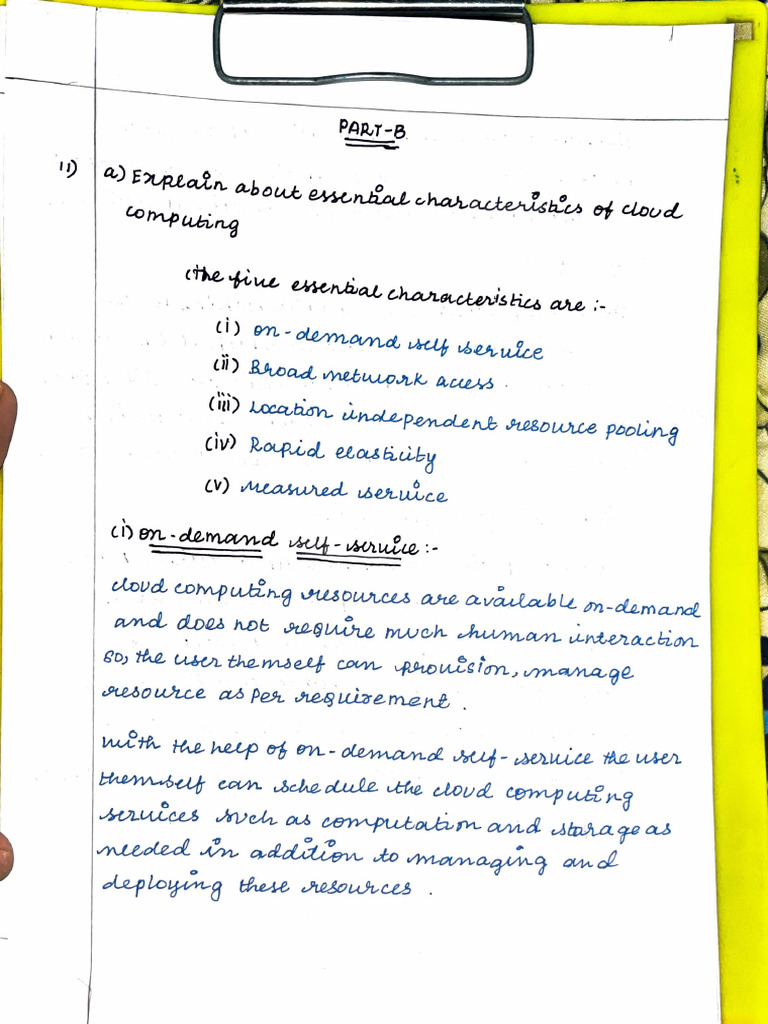 PART-B
11) a) Explain about essential characteristics of cloud
computing
The five essential characteristics are :-
(i) on-demand self service
(ii) Broad network access.
(iii) Location independent resource pooling
(iv) Rapid elasticity
(v) Measured service
(i) on-demand self-service :-
cloud computing resources are available on-demand
and does not require much human interaction
so, the user themself can provision, manage
resource as per requirement.
with the help of on-demand self-service the user
themself can schedule the cloud computing
services such as computation and storage as
needed in addition to managing and
deploying these resources.